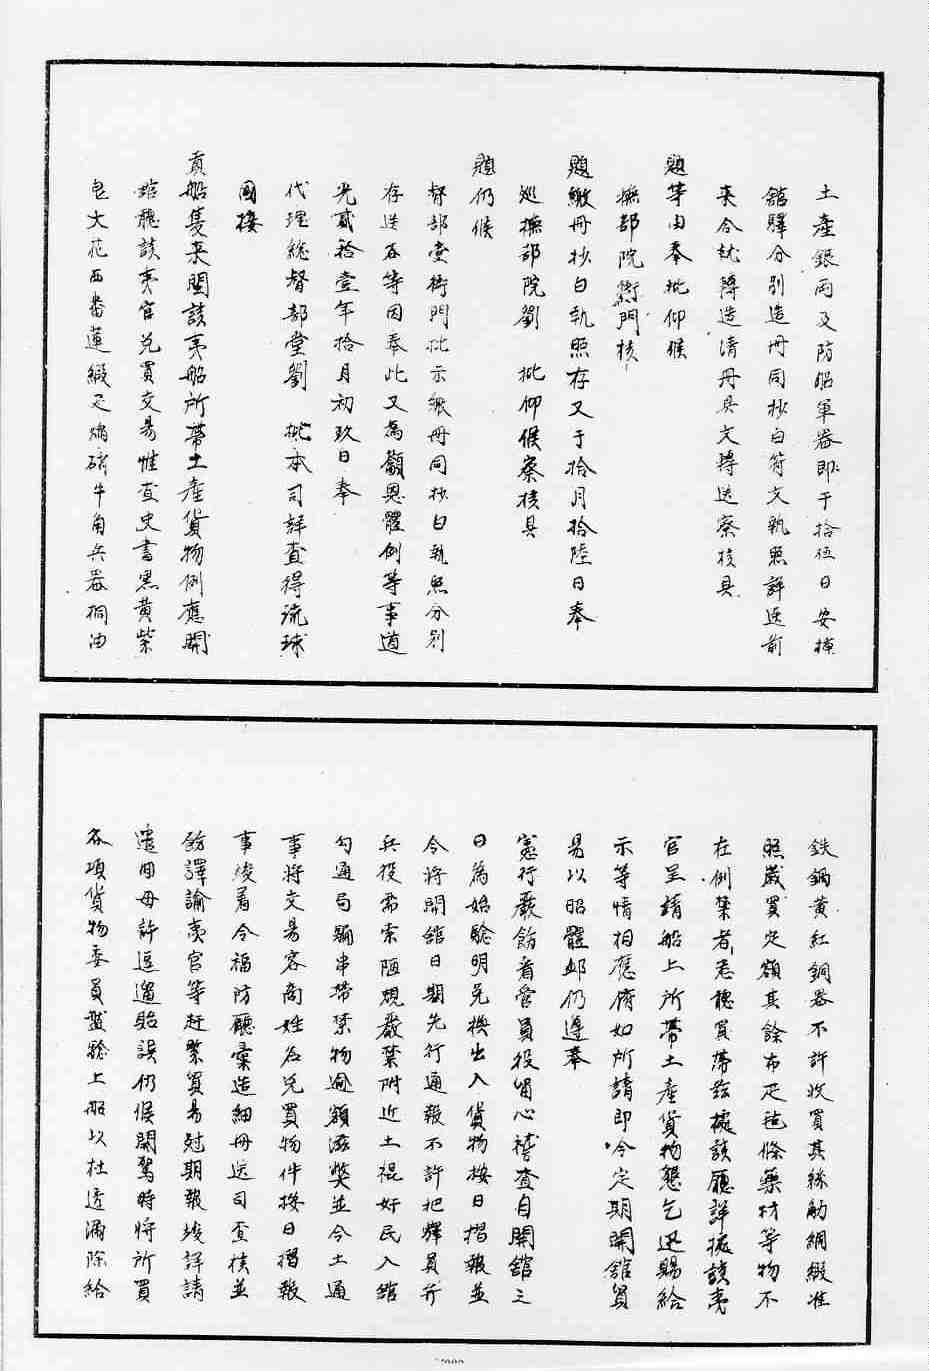 土產銀兩及防船軍器即于拾伍日安揷
舘驛分別造冊同抄白符文執照詳送前
來合就轉造清冊具文轉送察核具
題等由奉批仰候
撫部院衙門核
題繳冊抄白執照存又于拾月拾陸日奉
巡撫部院劉　批仰候察核具
題仍候
督部堂衙門批示繳冊同抄白執照分別
存送各等因奉此又為籲恩體例等事道
光貳拾壹年拾月初玖日奉
代理總督部堂劉　批本司詳查得琉球
國接
貢船隻来閩該夷船所帶土產貨物例應開
舘聽該夷官兌買交易惟查史書黑黃紫
皂大花西番蓮緞疋焇磺牛角兵器桐油
鉄鍋黃紅銅器不許收買其絲觔綢緞准
照歲買定額其餘布疋毡條藥材等物不
在例禁者悉聽買帶玆據該廳詳據該夷
官呈請船上所帶土產貨物懇乞迅賜給
示等情相應俯如所請即令定期開舘貿
易以昭體卹仍遵奉
憲行嚴飭看管員役留心稽查自開舘之
日為始驗明兌換出入貨物按日摺報並
令將開舘日期先行通報不許把驛員弁
兵役需索陋規嚴禁附近土棍奸民入舘
勾通局騙串帶禁物逾額滋獘並令土通
事將交易客商姓名兌買物件按日摺報
事竣着令福防廳彙造細冊送司查核並
飭譯諭夷官等赶緊貿易尅期報竣詳請
遣囬毋許逗遛貽誤仍候開駕時將所買
各項貨物委員盤驗上船以杜透漏除給